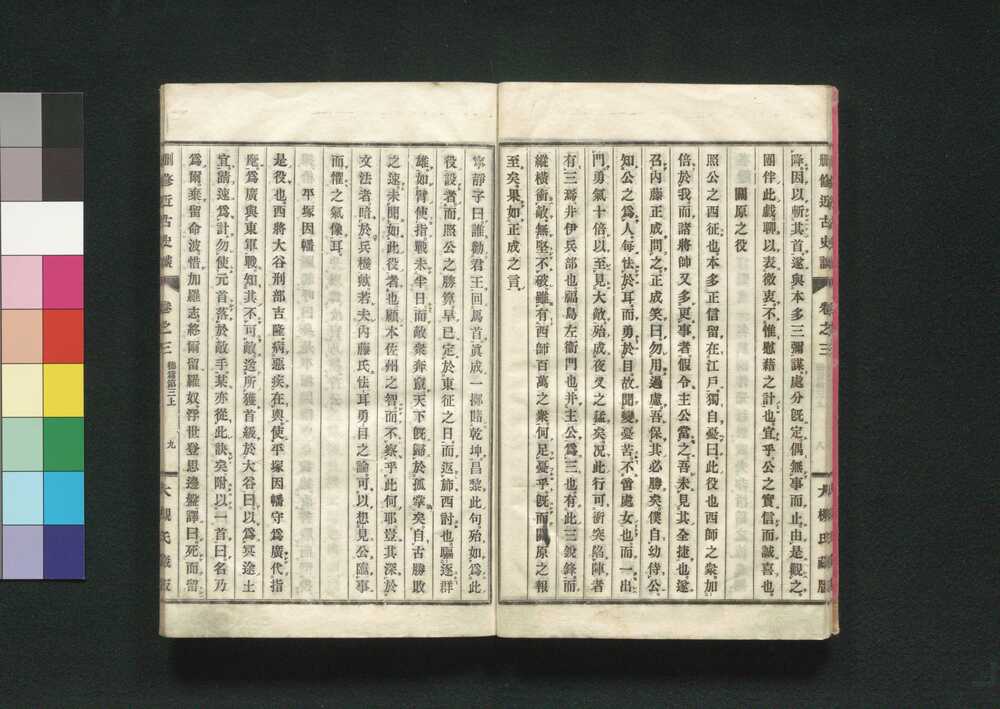 降。因以斬其首。遂與本多三彌謀。處分既定。偶無事而止。由是觀之。
團伴此戲。聊以表微衷。不惟慰藉之計也。宜乎公之實信而誠喜也。
關原之役
照公之西征也。本多正信留在江戶。獨自憂曰。此役也。西師之衆加
倍於我。而諸將帥又多更事者。假令主公當之。吾未見其全捷也。遂
召內藤正成問之。正成笑曰。勿用過慮。吾保其必勝矣。僕自幼侍公。
知公之爲人。每怯於耳。而勇於目。故聞變憂苦。不啻處女也。而一出
門。勇氣十倍。以至見大敵。殆成夜叉之猛矣。况此行可衝突陷陣者
有三焉。井伊兵部也。福島左衞門也。并主公爲三也。有此三銳鋒。而
縱橫衝敵。無堅不破。雖有西師百萬之衆。何足憂乎。既而關原之報
至矣。果如正成之言。
寧靜子曰。誰勸君王回馬首。眞成一擲賭乾坤。昌黎此句。殆如爲此
役設者。而照公之勝算。早已定於東征之日。而返旆西討也。驅逐群
雄。如臂使指。戰未半日。而敵衆奔竄。天下既歸於孤掌矣。自古勝敗
之速。未聞如此役者也。顧本佐州之智。而不察乎此何耶。豈其深於
文法者。暗於兵機歟。若夫內藤氏怯耳勇目之論。可以想見公臨事
而懼之氣像耳。
平塚因幡
是役也。西將大谷刑部吉隆。病惡疾在輿。使平塚因幡守爲廣代指
麾。爲廣與東軍戰。知其不可敵。送所獲首級於大谷曰。以爲冥途土
宜。請速爲計。勿使元首落於敵手。某亦從此訣矣。附以一首曰。名乃
爲爾。棄留命波。惜加羅志。終爾留羅奴。浮世登思邊盤。譯曰。死而留
刪修近古史談
卷之三
大槻氏藏版
刪修近古史談
卷之三
德篇第三上
九
大槻氏藏版